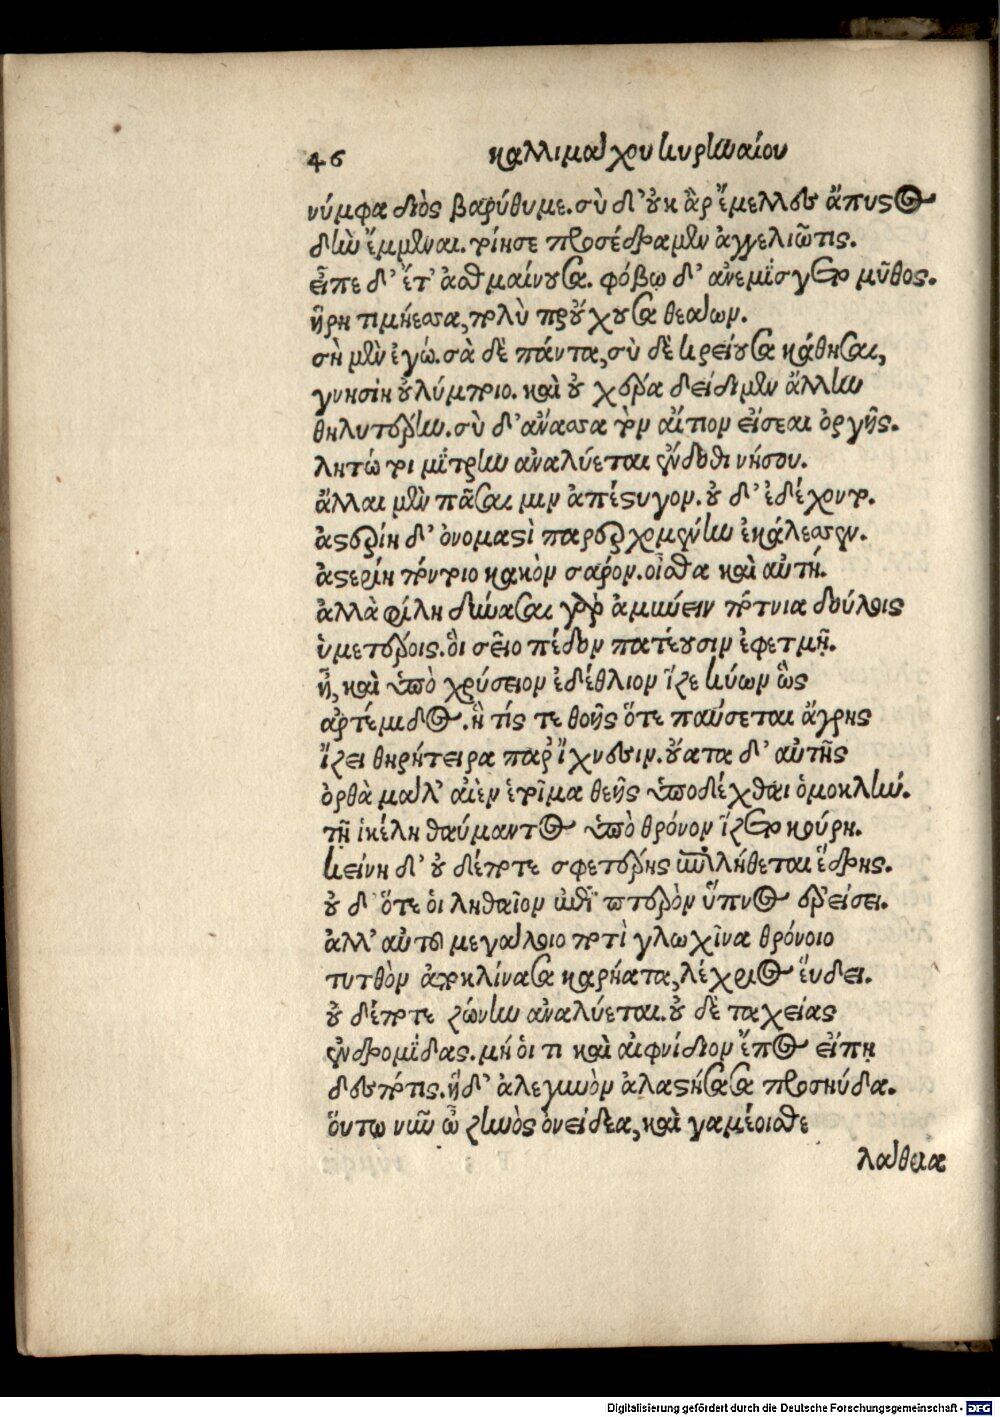 46 καλλιμάχου κυρηναίου
νύμφα διὸς βαρύθυμε. σὺ δ' οὐκ ἂρ ἔμελλες ἄπυστος
δὴν ἔμμεναι. τοίησε προσέδραμεν ἀγγελιῶτις.
εἶπε δ' ἔτ' ἀσθμαίνουσα. φόβῳ δ' ἀνεμίσγετο μῦθος.
ἥρη τιμήεσσα, πολὺ προὔχουσα θεάων.
σὴ μὲν ἐγώ. σὰ δὲ πάντα, σὺ δὲ κρείουσα κάθησαι,
γνησίη οὐλύμποιο. καὶ οὐ χέρα δείδιμεν ἄλλην
θηλυτέρην. σὺ δ' ἄνασσα τὸν αἴτιον εἴσεαι ὀργῆς.
λητώ τοι μίτρην ἀναλύεται ἔνδοθι νήσου.
ἄλλαι μὲν πᾶσαι μιν ἀπέστυγον. οὐ δ' ἐδέχοντο.
ἀστερίη δ' ὀνομαστὶ παρερχομένην ἐκάλεσσεν.
ἀστερίη πόντοιο κακὸν σάρον. οἶσθα καὶ αὐτή.
ἀλλὰ φίλη δύνασαι γὰρ ἀμύνειν πότνια δούλοις
ὑμετέροις. οἳ σεῖο πέδον πατέουσιν ἐφετμῇ.
ἦ, καὶ ὑπὸ χρύσειον ἐδέθλιον ἵζε κύων ὣς
ἀρτέμιδος. ἥ τίς τε θοῆς ὅτε παύσεται ἄγρης
ἵζει θηρήτειρα παρ' ἴχνεσιν. οὔατα δ' αὐτῆς
ὀρθὰ μάλ' αἰὲν ἑτοῖμα θεῆς ὑποδέχθαι ὁμοκλήν.
τῇ ἰκέλη θαύμαντος ὑπὸ θρόνον ἵζετο κούρη.
κείνη δ' οὐ δέποτε σφετέρης ἐπιλήθεται ἕδρης.
οὐ δ' ὅτε οἱ ληθαῖον ἐπὶ πτερὸν ὕπνος ἐρείσει.
ἀλλ' αὐτοῦ μεγάλοιο ποτὶ γλωχῖνα θρόνοιο
τυτθὸν ἀποκλίνασα καρήατα, λέχριος εὕδει.
οὐ δέποτε ζώνην ἀναλύεται. οὐ δὲ ταχείας
ἐνδρομίδας. μή οἱ τι καὶ αἰφνίδιον ἔπος εἴπῃ
δεσπότις. ἡ δ' ἀλεγεινὸν ἀλαστήσασα προσηύδα.
οὕτω νῦν ὦ ζηνὸς ὀνείδεα, καὶ γαμέοισθε
λάθρια
Digitalisierung gefördert durch die Deutsche Forschungsgemeinschaft - DFG